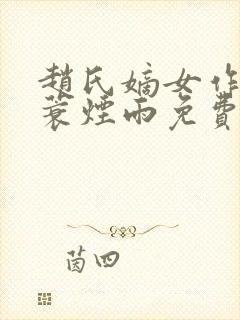 趙氏嫡女作
蓑煙雨免費
茵四